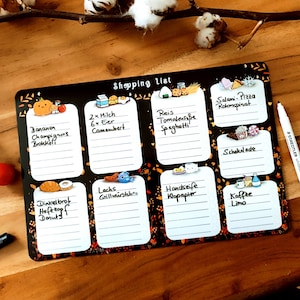 Shopping List
Bananen
Champignons
2x Milch
2x Eier
Camembert
Reis
Tomatensoße
Spaghetti
Salami Pizza
Rahmspinat
Schokolade
Dinkelbrot
Donuts
Lachs
Handseife
Klopapier
Kaffee
Limo